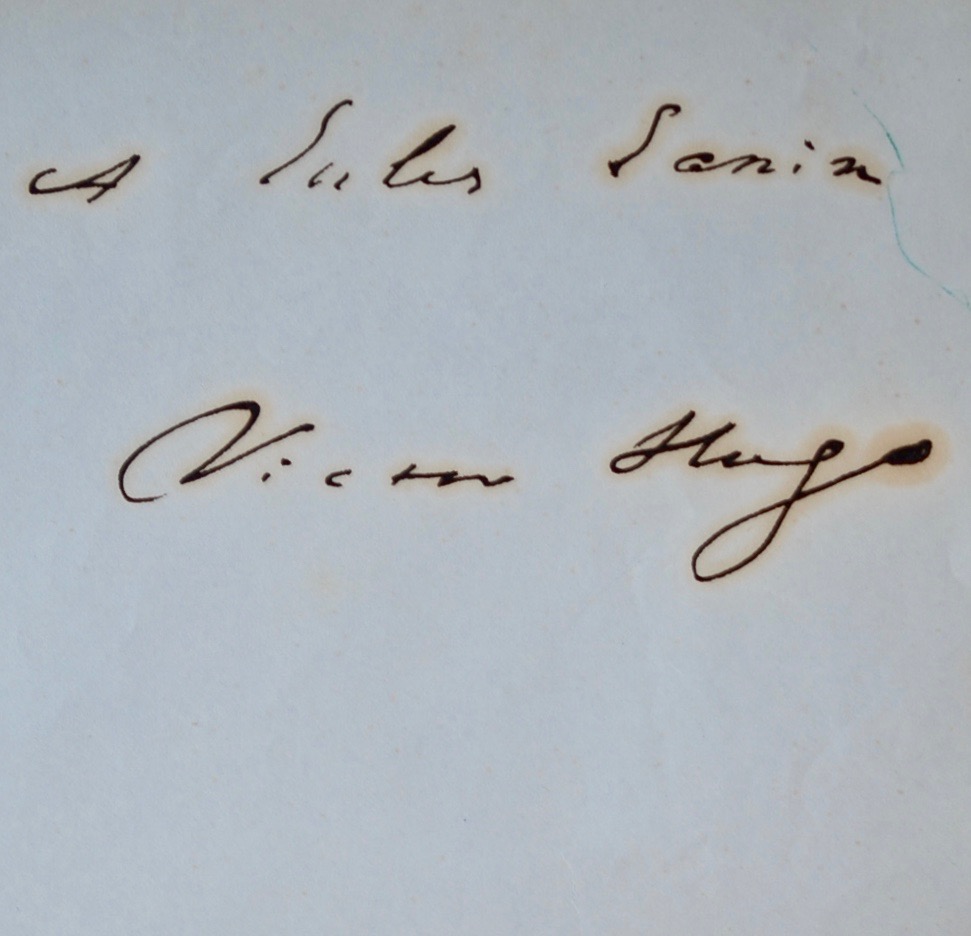 A Jules Janin
Victor Hugo